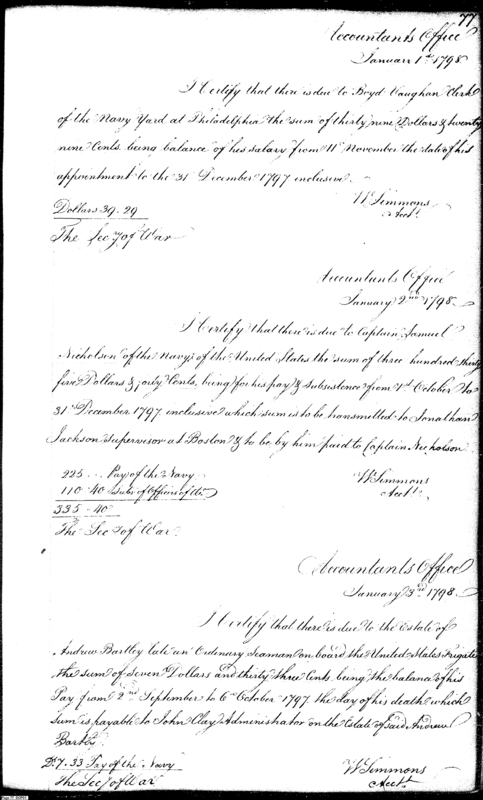 77
Accountants Office
January 1st 1798
I Certify that there is due to Boyd Vaughan Clerk
of the Navy Yard at Philadelphia the sum of thirty nine Dollars & twenty
nine Cents being balance of his salary from 11th November the date of his
appointment to the 31 December 1797 inclusive.
Wm Simmons
Acct.
Dollars 39.29
The Secy of War
Accountants Office
January 2nd 1798
I Certify that there is due to Captain Samuel
Nicholson of the Navy of the United States the sum of three hundred thirty
five Dollars & forty Cents, being for his pay & Subsistence from 1st October to
31 December 1797 inclusive which sum is to be transmitted to Jonathan
Jackson Supervisor at Boston & to be by him paid to Captain Nicholson
225 .. Pay of the Navy
110 40 Subs of Officers of do.
335 - 40
Wm Simmons
Acct.
The Secy of War
Accountants Office
January 3rd 1798.
I Certify that there is due to the Estate of
Andrew Bartley late an Ordinary Seaman on board the United States Frigate
the sum of seven Dollars and thirty three Cents. being the balance of his
Pay from 2nd September to 6th October 1797 the day of his death which
sum is payable to John Clay Administrator on the Estate of said Andrew
Bartley
Ds. 7.33 Pay of the Navy
Wm Simmons
Acct.
The Secy of War